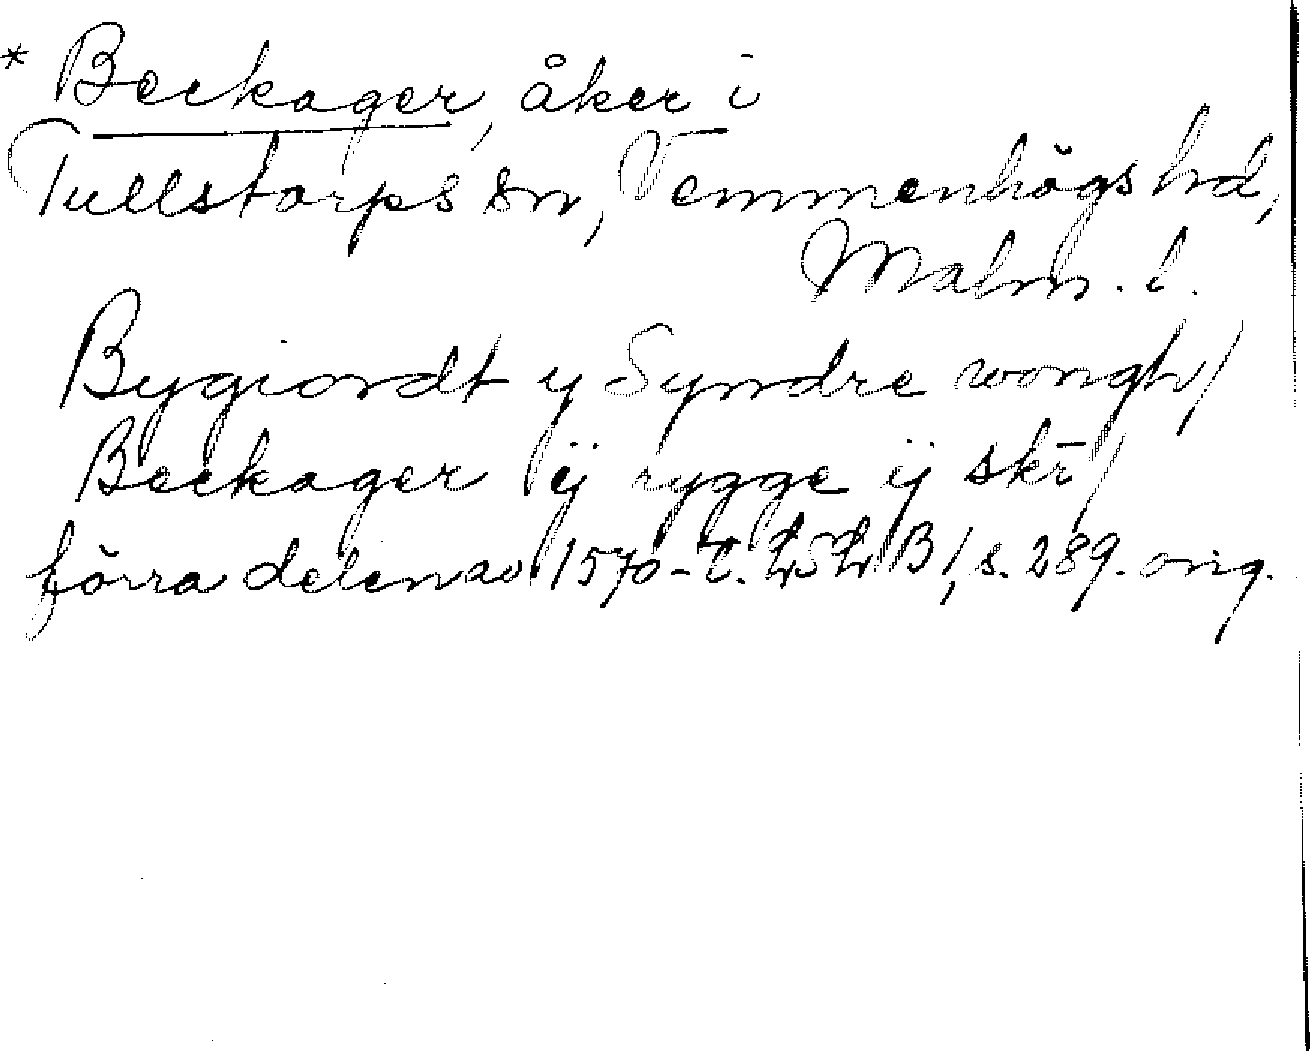 * Beckager, åker i
Tullstorps sn, Vemmenhögs hd,
Malm. l.
Bygiordt y Syndre wongh/
Beckager ij rygge ij skr/
förra delen av 1570-t. LSL B1, s. 289. orig.